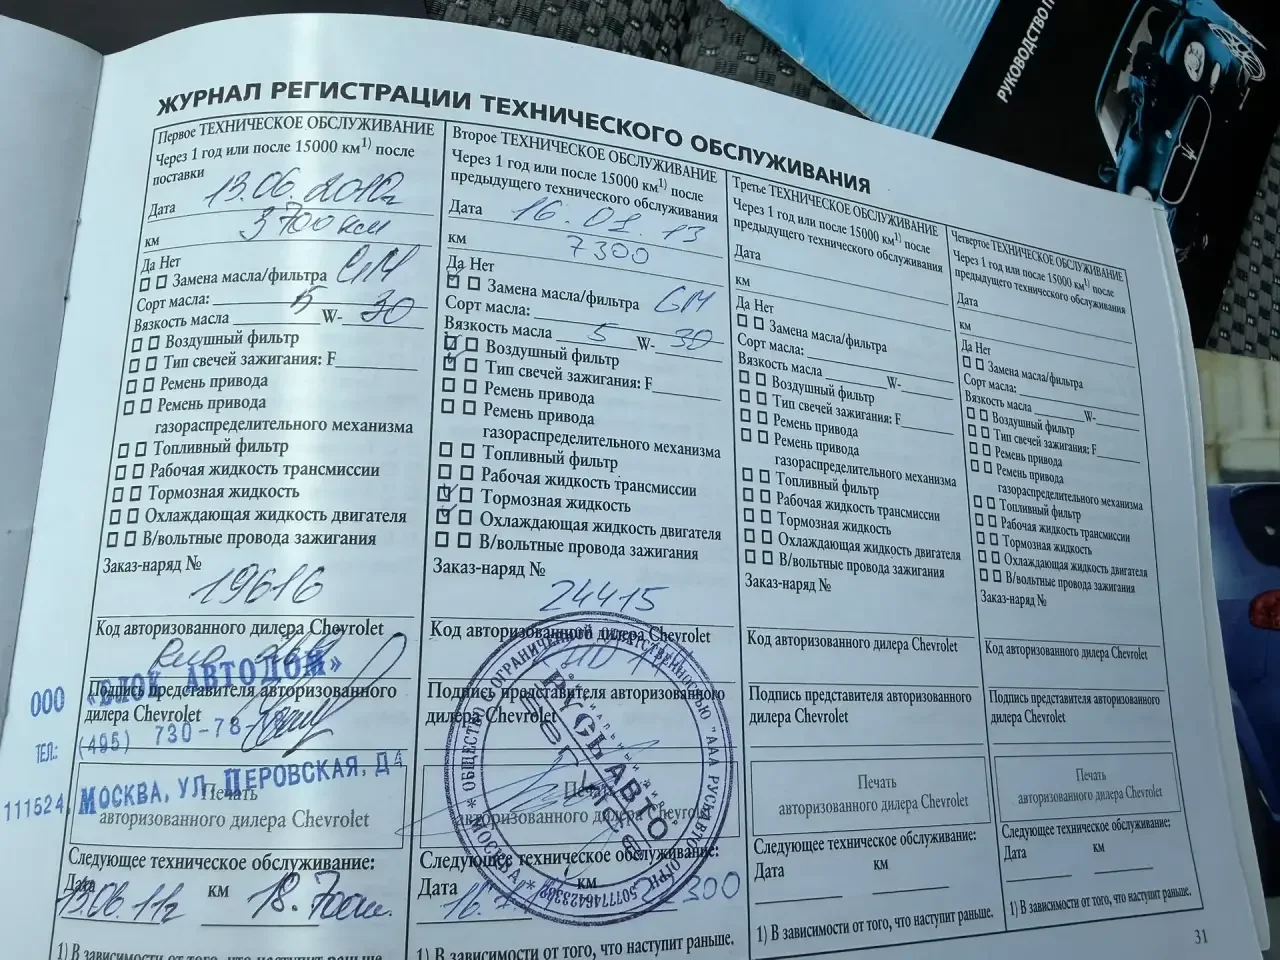 РУКОВОДСТВО П
ЖУРНАЛ РЕГИСТРАЦИИ ТЕХНИЧЕСКОГО ОБСЛУЖИВАНИЯ
Первое ТЕХНИЧЕСКОЕ ОБСЛУЖИВАНИЕ
Через 1 год или после 15000 км1) после
поставки
Дата 13.06.2010г
км 3700 км
Да Нет
Замена масла/фильтра
Сорт масла: GM
Вязкость масла 5 W- 30
Воздушный фильтр
Тип свечей зажигания: F
Ремень привода
Ремень привода
газораспределительного механизма
Топливный фильтр
Рабочая жидкость трансмиссии
Тормозная жидкость
Охлаждающая жидкость двигателя
В/вольтные провода зажигания
Заказ-наряд №
19616
Код авторизованного дилера Chevrolet
Подпись представителя авторизованного
дилера Chevrolet
ООО «БЛОК АВТОДОМ»
ТЕЛ.: (495) 730-78-
111524, МОСКВА, УЛ. ПЕРОВСКАЯ, Д
Печать
авторизованного дилера Chevrolet
Следующее техническое обслуживание:
Дата км
13.06.11г 18.700км.
1) В зависимости от того, что наступит раньше.
Второе ТЕХНИЧЕСКОЕ ОБСЛУЖИВАНИЕ
Через 1 год или после 15000 км1) после
предыдущего технического обслуживания
Дата 16.01.13
км 7300
Да Нет
Замена масла/фильтра
Сорт масла: GM
Вязкость масла 5 W- 30
Воздушный фильтр
Тип свечей зажигания: F
Ремень привода
Ремень привода
газораспределительного механизма
Топливный фильтр
Рабочая жидкость трансмиссии
Тормозная жидкость
Охлаждающая жидкость двигателя
В/вольтные провода зажигания
Заказ-наряд №
24415
Код авторизованного дилера Chevrolet
Подпись представителя авторизованного
дилера Chevrolet
ОБЩЕСТВО С ОГРАНИЧЕННОЙ ОТВЕТСТВЕННОСТЬЮ "ААА РУСЬАВТО"
МОСКВА
РУСЬАВТО
Печать
авторизованного дилера Chevrolet
Следующее техническое обслуживание:
Дата км
16. 300
1) В зависимости от того, что наступит раньше.
Третье ТЕХНИЧЕСКОЕ ОБСЛУЖИВАНИЕ
Через 1 год или после 15000 км1) после
предыдущего технического обслуживания
Дата
км
Да Нет
Замена масла/фильтра
Сорт масла:
Вязкость масла W-
Воздушный фильтр
Тип свечей зажигания: F
Ремень привода
Ремень привода
газораспределительного механизма
Топливный фильтр
Рабочая жидкость трансмиссии
Тормозная жидкость
Охлаждающая жидкость двигателя
В/вольтные провода зажигания
Заказ-наряд №
Код авторизованного дилера Chevrolet
Подпись представителя авторизованного
дилера Chevrolet
Печать
авторизованного дилера Chevrolet
Следующее техническое обслуживание:
Дата км
1) В зависимости от того, что наступит раньше.
Четвертое ТЕХНИЧЕСКОЕ ОБСЛУЖИВАНИЕ
Через 1 год или после 15000 км1) после
предыдущего технического обслуживания
Дата
км
Да Нет
Замена масла/фильтра
Сорт масла:
Вязкость масла W-
Воздушный фильтр
Тип свечей зажигания: F
Ремень привода
Ремень привода
газораспределительного механизма
Топливный фильтр
Рабочая жидкость трансмиссии
Тормозная жидкость
Охлаждающая жидкость двигателя
В/вольтные провода зажигания
Заказ-наряд №
Код авторизованного дилера Chevrolet
Подпись представителя авторизованного
дилера Chevrolet
Печать
авторизованного дилера Chevrolet
Следующее техническое обслуживание:
Дата км
1) В зависимости от того, что наступит раньше.
31